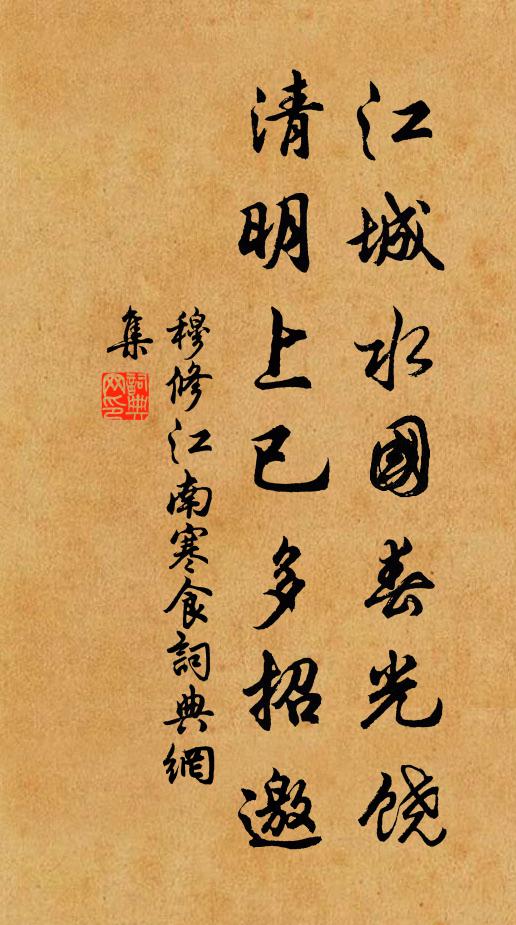 江城水國春光饶
清明上巳多招邀
穆修江南寒食詞典網
集
詞典
网印